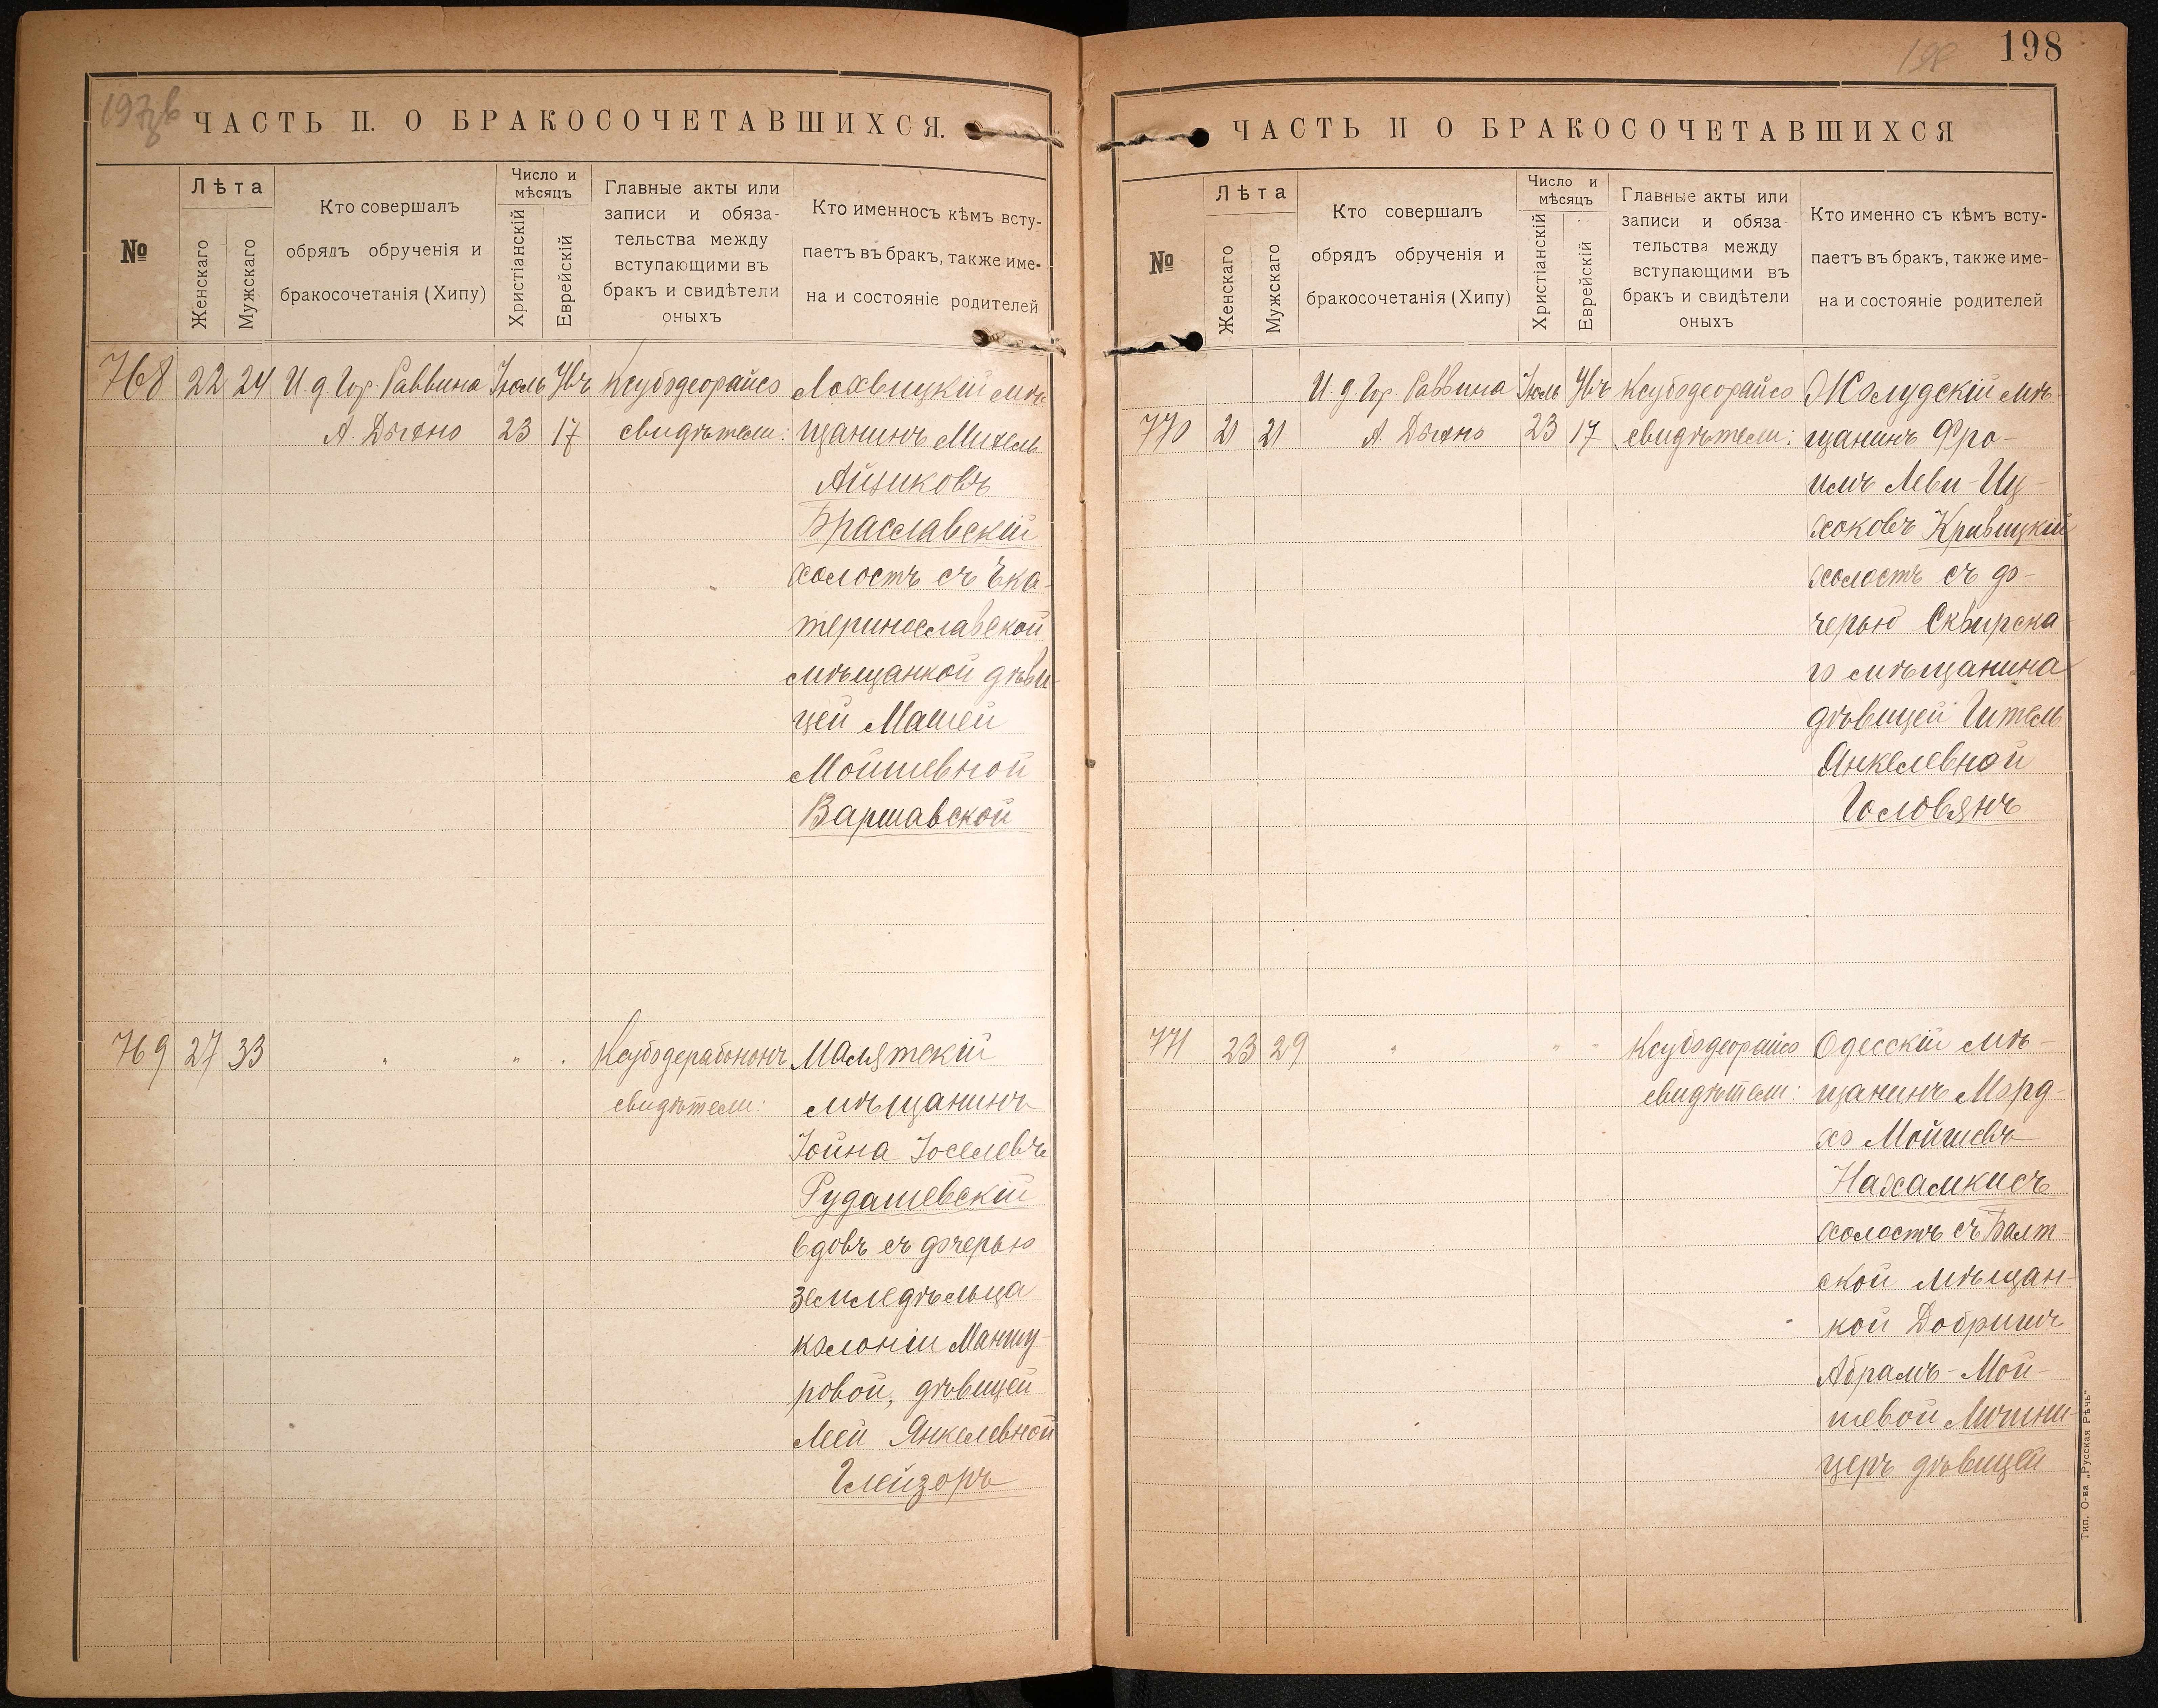 197об
ЧАСТЬ II. О БРАКОСОЧЕТАВШИХСЯ.
№
Лѣта
Женскаго
Мужскаго
Кто совершалъ
обрядъ обрученія и
бракосочетанія (Хипу)
Число и
мѣсяцъ
Христіанскій
Еврейскій
Главные акты или
записи и обяза-
тельства между
вступающими въ
бракъ и свидѣтели
оныхъ
Кто именносъ кѣмъ всту-
паетъ въ бракъ, также име-
на и состояніе родителей
768 22 24 И. д. Гор. Раввина Іюль Увъ Ксубодеорайсо Лохвицкій мѣ-
А. Дыхно 23 17 свидѣтели: щанинъ Михель
Айзиковъ
Браславскій
холостъ съ Ека-
теринославской
мѣщанкой дѣви-
цей Машей
Мойшевной
Варшавской
769 27 33 " " " Ксубодерабононъ Малятскій
свидѣтели: мѣщанинъ
Іойна Іоселевъ
Рудашевскій
вдовъ съ дочерью
земледѣльца
колоніи Маншу-
ровой, дѣвицей
Леей Янкелевной
Глейзоръ
198
198
ЧАСТЬ II О БРАКОСОЧЕТАВШИХСЯ
№
Лѣта
Женскаго
Мужскаго
Кто совершалъ
обрядъ обрученія и
бракосочетанія (Хипу)
Число и
мѣсяцъ
Христіанскій
Еврейскій
Главные акты или
записи и обяза
тельства между
вступающими въ
бракъ и свидѣтели
оныхъ
Кто именно съ кѣмъ всту-
паетъ въ бракъ, также име-
на и состояніе родителей
И. д Гор. Раввина Іюль Увъ Ксубодеорайсо Жолудскій мѣ-
770 21 21 А. Дыхно 23 17 свидѣтели: щанинъ Фро-
имъ Леви-Иц-
хоковъ Кривицкій
холостъ съ до-
черью Сквирска-
го мѣщанина
дѣвицей Гитель
Янкелевной
Головянъ
771 23 29 " " " Ксубодеорайсо Одесскій мѣ-
свидѣтели: щанинъ Морд-
хо Мойшевъ
Нахамкисъ
холостъ съ Балт-
ской мѣщан-
кой Добришъ
Абрамъ-Мой-
шевой
церъ дѣвицей
Тип. О-ва „Русская Рѣчь"